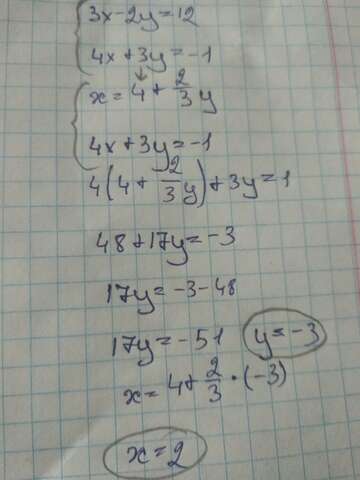 3x-2y=12
4x+3y=-1
x=4+2/3y
4x+3y=-1
4(4+2/3y)+3y=1
48+17y=-3
17y=-3-48
17y=-51 y=-3
x=4+2/3·(-3)
x=2